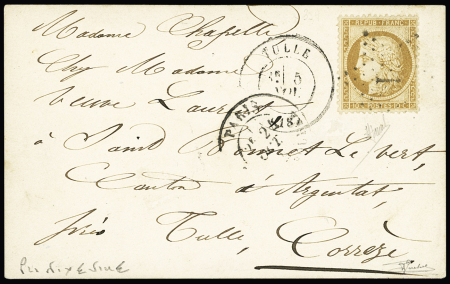 Madame Chapelle
Chez Madame
Veuve Laure
à Saint Bonnet Le vert,
Canton d'Argentat,
près Tulle,
Corrèze
TULLE
5
PARIS
REPUB. FRANC.
POSTES
1